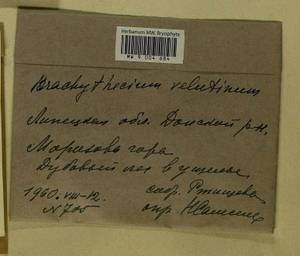 Herbarium MW, Bryophyta
MW 9 004 684
Brachythecium velutinum
Липецкая обл. Донской р-н.
Морозова гора
Дубовый лес в ущелье
1960.VIII-12. собр. Ртищева
N 705 опр.